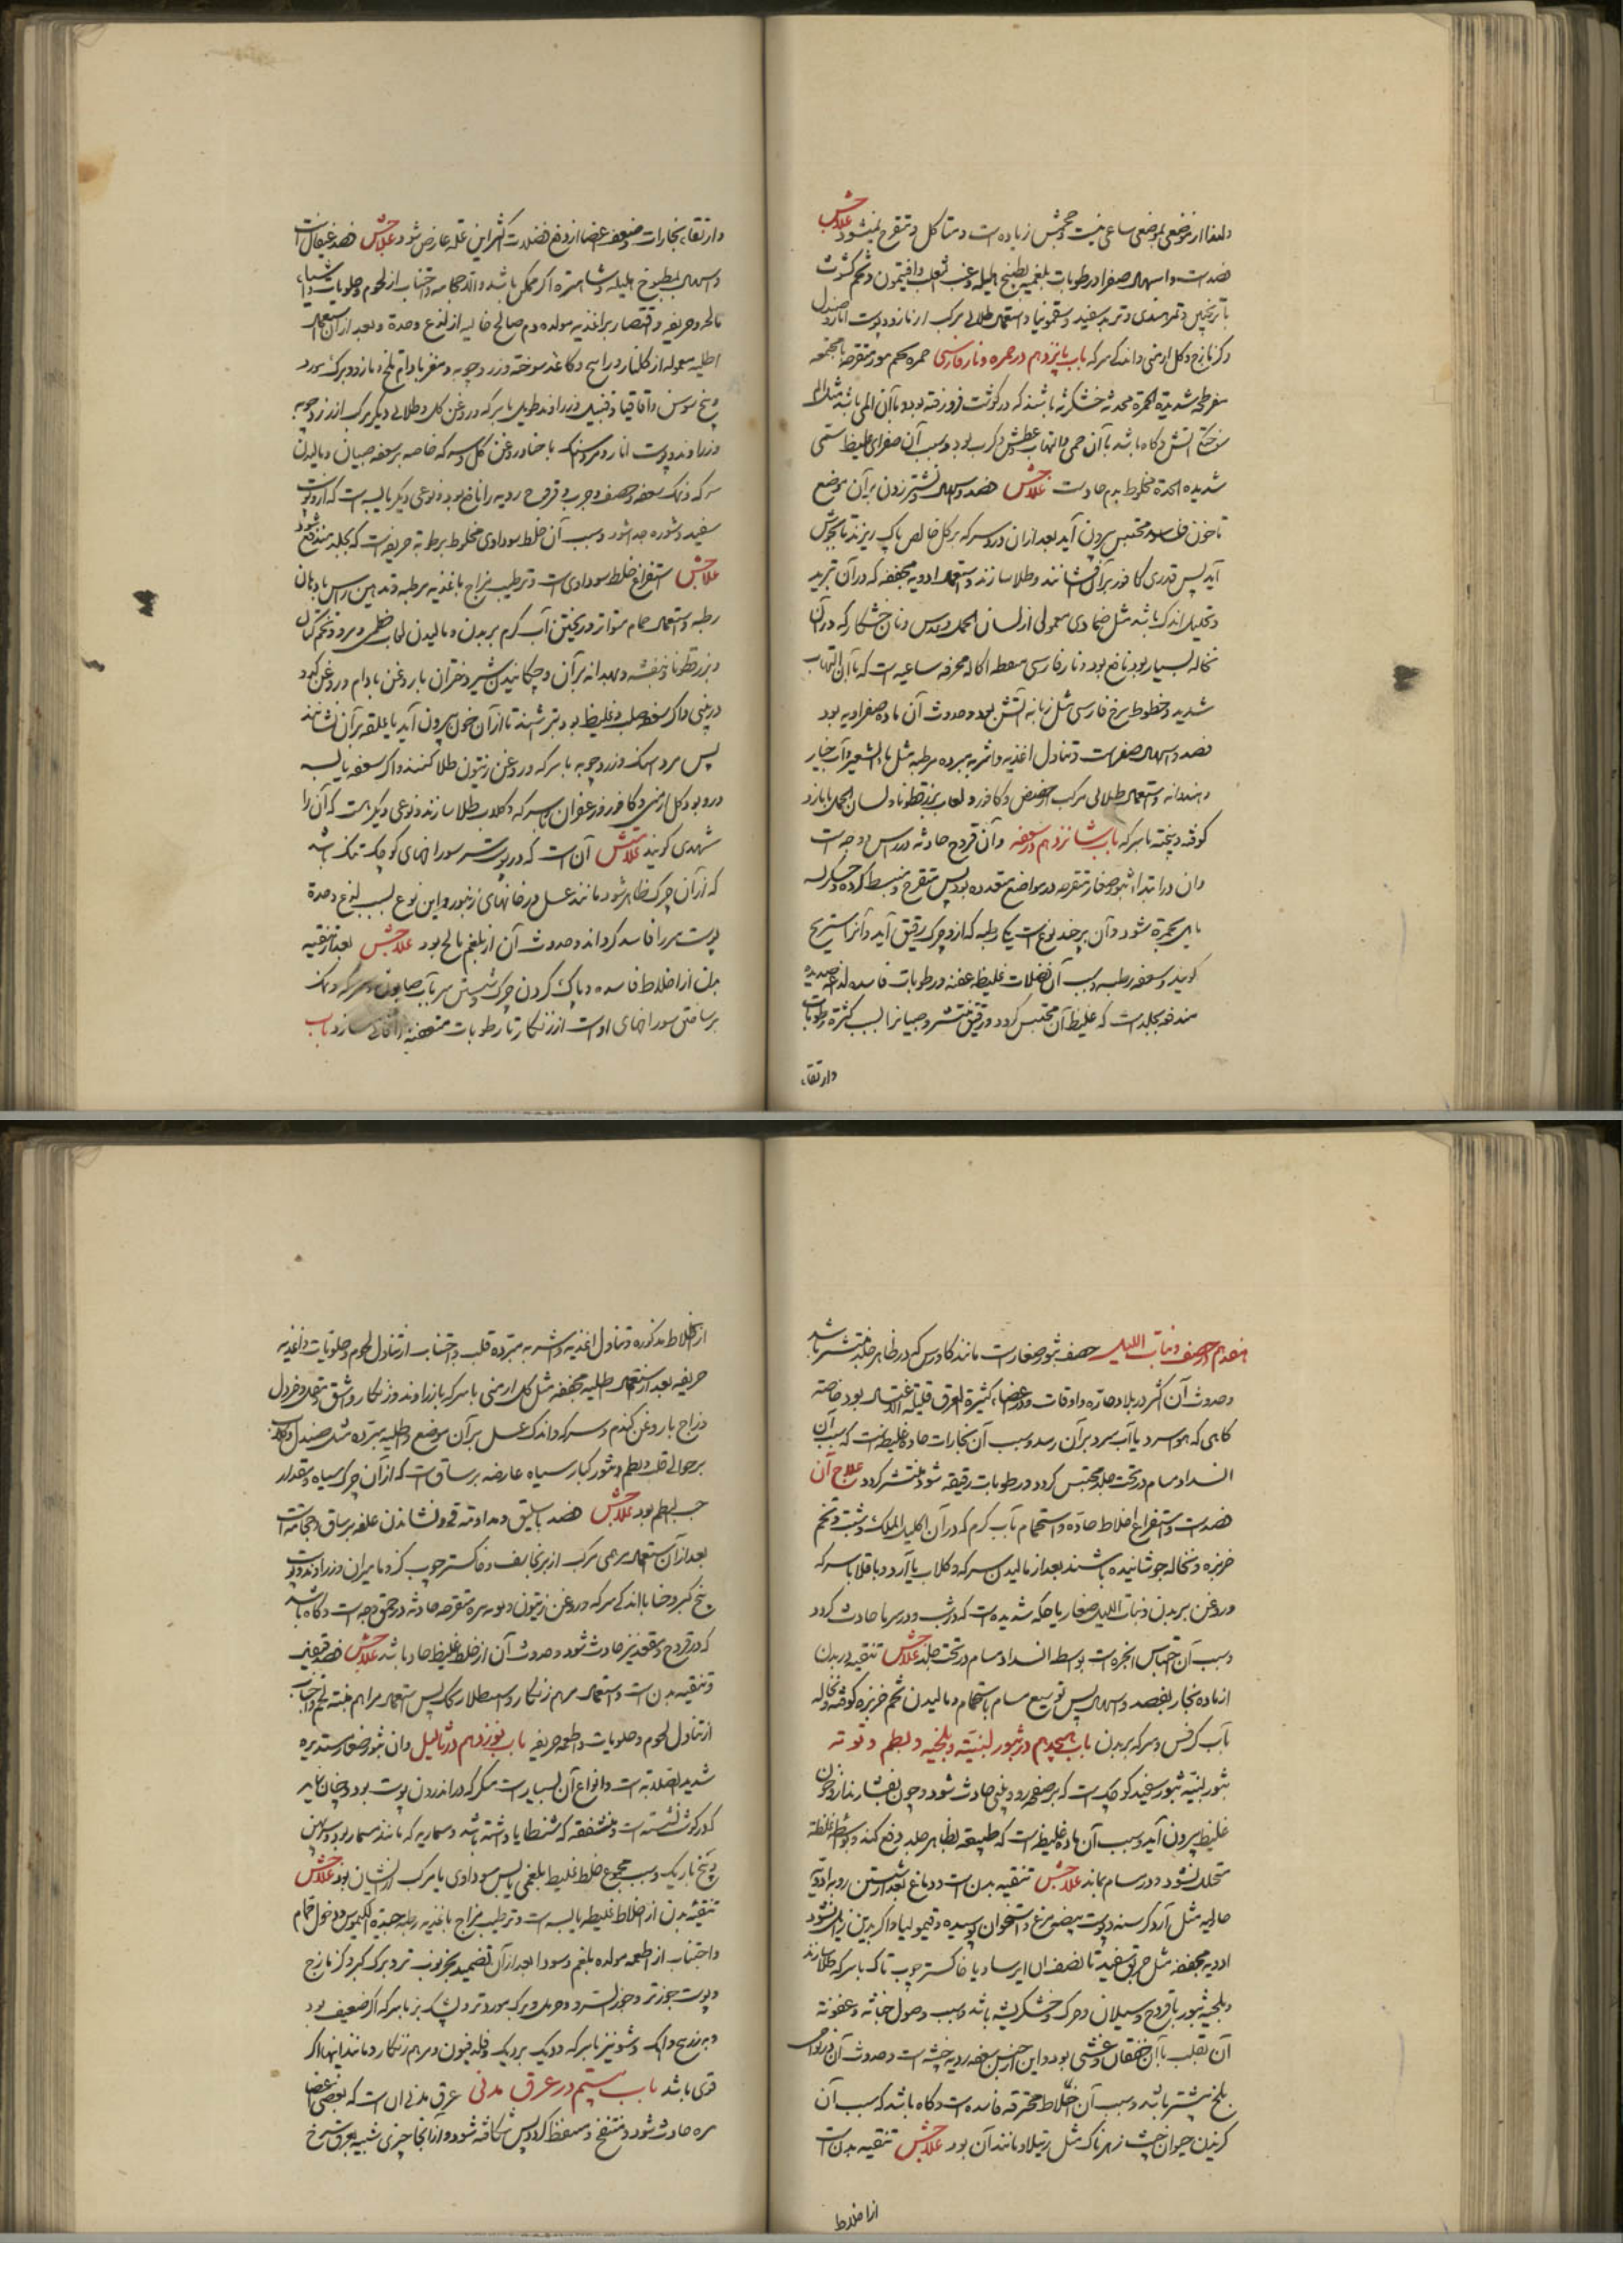 و لهذا از موضعی بموضعی ساعی نیست و حجمش زیاده است و متاکل و متقرح نمیشود علاجش
فصدست و اسهال صفرا و رطوبات بلغمیه بطبیخ هلیله و عنب ثعلب و افتیمون و تخم کشوث
با ترنجبین و تمر هندی و تربد سفید و سقمونیا و استعمال طلائی مرکب از مازو و پوست انار و صندل
و کزمازج و گل ارمنی و اندکی سرکه باب پانزدهم در حمره و نار فارسی حمره بثور متقرحه مجتمعه
مفرطحه شدیدة الحمرة محدثه خشکریشه باشند که در گوشت فرو رفته بود و با آن المی باشد مثل الم
سوختگی آتش و گاه باشد با آن حمی و التهاب و عطش و کرب بود و سبب آن صفرای غلیظ سمی
شدیده الحدة مخلوط بدم حادست علاجش فصد و اسهال و نشتر زدن بر آن موضع
تا خون فاسد محتبس بیرون آید بعد از آن درد سرکه بر گل خالص پاک ریزند تا بجوش
آید پس قدری کافور بر آن افشانند و طلا سازند و استعمال ادویه مجففه که در آن تبرید
و تحلیل اندک باشد مثل ضمادی معمول از لسان الحمل و عدس و نان خشکار که در آن
نخاله بسیار بود نافع بود و نار فارسی منفطه اکاله محرقه ساعیه است که با آن التهاب
شدید و خطوط سرخ فارسی مثل زبانه آتش بود و حدوث آن ماده صفراویه بود
فصد و اسهال صفراست و تناول اغذیه و اشربه مبرده مرطبه مثل ماء الشعیر و آب خیار
و هندوانه و استعمال طلائی مرکب از حضض و کافور و لعاب بزرقطونا و لسان الحمل با مازو
کوفته و بیخته با سرکه باب شانزدهم در سعفه و آن قروح حادثه در راس و وجه است
و آن در ابتدا بثور صغار متفرقه در مواضع متعدده بود پس متقرح و منبسط گردد و خشکریشه
مایل بحمرة شود و آن بر چند نوع است یکی رطبه که ازو چرک رقیق آید و آنرا شیرینج
گویند و سعفه رطبه و سبب آن فضلات غلیظ عفنه و رطوبات فاسده لذاعه صدیدیه
مندفعه بجلد است که غلیظ آن محتبس گردد و رقیق منتشر و صبیانرا بسبب کثرة رطوبات
و ارتقاء
و ارتقاء بخارات و ضعف اعضا از دفع فضلات اکثر این علة عارض شود علاجش فصد قیفال است
و اسهال بمطبوخ هلیله و شاهتره اگر ممکن باشد و الا حجامه و اجتناب از لحوم و حلویات و اشیاء
مالحه و حریفه و اقتصار بر اغذیه مولده دم صالح خالیه از لذع و حدة و بعد از آن استعمال
اطلیه معموله از گلنار و مرداسنج و کاغذ سوخته و زردچوبه و مغز بادام تلخ و مازو و برگ مورد
و بیخ سوسن و اقاقیا و قنبیل و زراوند طویل با سرکه و روغن گل و طلائی دیگر مرکب از زردچوبه
و زراوند و پوست انار و مردارسنگ با حنا و روغن گل و سرکه خاصه بر سعفه صبیان و مالیدن
سرکه و نمک سعفه و حصف و جرب و قروح ردیه را نافع بود و نوعی دیگر یابسه است که ازو پوست
سفید و شوره جدا شود و سبب آن خلط سوداوی مخلوط برطوبة حریفه است که بجلد مندفع شود
علاجش استفراغ خلط سوداوی است و ترطیب مزاج باغذیه مرطبه و تدهین راس بادهان
رطبه و استعمال حمام متواتر و ریختن آب گرم بر بدن و مالیدن لعاب خطمی و مرو و تخم کتان
و بزرقطونا و بنفشه و بهدانه بر آن و چکانیدن شیر دختران با روغن بادام و روغن کدو
در بینی و اگر سعفه صلب و غلیظ بود بتراشند تا از آن خون بیرون آید یا علقه بر آن نشانند
پس مرداسنگ و زردچوبه با سرکه و روغن زیتون طلا کنند و اگر سعفه یابسه
در رو بود گل ارمنی و کافور و زعفران با سرکه و گلاب طلا سازند و نوعی دیگر هست که آن را
شهدی گویند علامتش آن است که در پوست سر سوراخهای کوچک تنگ باشد
که از آن چرک ظاهر شود مانند عسل در خانهای زنبور و این نوع بسبب لذع و حدة
پوست سر را فاسد گرداند و حدوث آن از بلغم مالح بود علاجش بعد از تنقیه
بدن از اخلاط فاسده و پاک کردن چرک شستن سر بآب صابون و سرکه و نمک
بر ساختن سوراخهای اوست از زنگار تا رطوبات متعفنه را فانی سازد باب
هفدهم در حصف و بنات اللیل حصف بثور صغار است مانند گاورس که در ظاهر جلد منتشر باشد
و حدوث آن اکثر در بلاد حاره و اوقات و در اعضاء کثیرة العرق قلیلة الاغتسال بود خاصه
گاهی که هوا سرد یا آب سرد بر آن رسد و سبب آن بخارات حاده غلیظه است که بسبب آن
انسداد مسام در تحت جلد محتبس گردد و رطوبات رقیقه شود و منتشر گردد علاج آن
فصدست و استفراغ اخلاط حاده و استحمام بآب گرم که در آن اکلیل الملک و شبت و تخم
خربزه و نخاله جوشانیده باشند بعد از مالیدن سرکه و گلاب یا آرد و باقلا با سرکه
و روغن بر بدن و بنات اللیل صغار با حکه شدیده است که در شب و در سرما حادث گردد
و سبب آن احتباس ابخره است بواسطه انسداد مسام در تحت جلد علاجش تنقیه بدن
از ماده بخار بفصد و اسهال پس توسیع مسام باستحمام و مالیدن تخم خربزه کوفته و نخاله
بآب کرفس و سرکه بر بدن باب هیجدهم در بثور لبنیه و بلخیه و بطم و توته
بثور لبنیه بثور سفید کوچک است که بر صفحه رو و بینی حادث شود و چون بفشارند ازو چون
غلیظ بیرون آید و سبب آن ماده غلیظ است که طبیعة بظاهر جلد دفع کند و بواسطه غلظة
متحلل نشود و در مسام بماند علاجش تنقیه بدن است و دماغ بعد از شستن رو بادویه
جالیه مثل آرد کرسنه و پوست بیضه مرغ و استخوان پوسیده و قیمولیا و اگر بدین زایل نشود
ادویه مجففه مثل خربق سفید تا نصف آن ایرسا و یا خاکستر چوب تاک با سرکه طلا سازند
و بلخیه بثور با قروح و سیلان و چرک و خشکریشه باشد و سبب وصول خباثه و عفونة
آن بقلب با آن خفقان و غشی بود و این از جنس سعفه ردیه خبیثه است و حدوث آن در نواحی
بلخ بیشتر باشد و سبب آن اخلاط محترقه فاسده است و گاه باشد که سبب آن
گزیدن حیوان خبیث زهرناک مثل رتیلا و مانند آن بود علاجش تنقیه بدن است
از اخلاط
از اخلاط مذکوره و تناول اغذیه و اشربه مبرده قلب و اجتناب از تناول لحوم و حلویات و اغذیه
حریفه بعد از استعمال اطلیه مجففه مثل گل ارمنی با سرکه یا زراوند و زنگار و اشق و مقل و خردل
و زاج با روغن گندم و سرکه و اندک عسل بر آن موضع و اطلیه مبرده مثل صندل و گلاب
بر حوالی قلب و بطم و بثور کبار سیاه عارضه بر ساق است که از آن چرک سیاه و مقدار
حب البطم بود علاجش فصد باسلیق و مداومة قی و نشاندن علقه بر ساق و حجامة است
بعد از آن استعمال مرهمی مرکب از برنجاسف و خاکستر چوب گز و مامیران و زراوند و پوست
بیخ کبر و حنا با اندکی سرکه و روغن زیتون و توته بثره متقرحه حادثه در عمق وجه است و گاه باشد
که در فرج و مقعد نیز حادث شود و حدوث آن از خلط غلیظ حاد باشد علاجش فصد قیفال
و تنقیه بدن است و استعمال مرهم زنگار و اسطلا کک پس استعمال مراهم منبته لحم و اجتناب
از تناول لحوم و حلویات و اطعمه حریفه باب نوزدهم در ثآلیل و آن بثور صغار مستدیره
شدید الصلابة است و انواع آن بسیار است منکوسه که در اندرون پوست بود و چنان نماید
که در گوشت نشسته است و متشققه که شظایا داشته باشد و مسماریه که مانند مسمار بود و سرپهن
و بیخ باریک و سبب مجموع خلط غلیظ بلغمی یابس سوداوی یا مرکب ازیشان بود علاجش
تنقیه بدن از اخلاط غلیظه یابسه است و ترطیب مزاج باغذیه رطبه جیدة الکیموس و دخول حمام
و اجتناب از اطعمه مولده بلغم و سودا بعد از آن تضمید بخرنوب تر و برگ کبر و کزمازج
و پوست جوز تر و جوز السرو و حرمل و برگ مورد تر و پشک بز با سرکه اگر ضعیف بود
و بزرنیخ و آهک و شونیز با سرکه و دیک بردیک و فلدفیون و مرهم زنگار و مانند اینها اگر
قوی باشد باب بیستم در عرق مدنی عرق مدنی آن است که بعضی اعضا
بثره حادث شود و منتفخ و منفط گردد پس شکافته شود و از آنجا چیزی شبیه بعرق سرخ